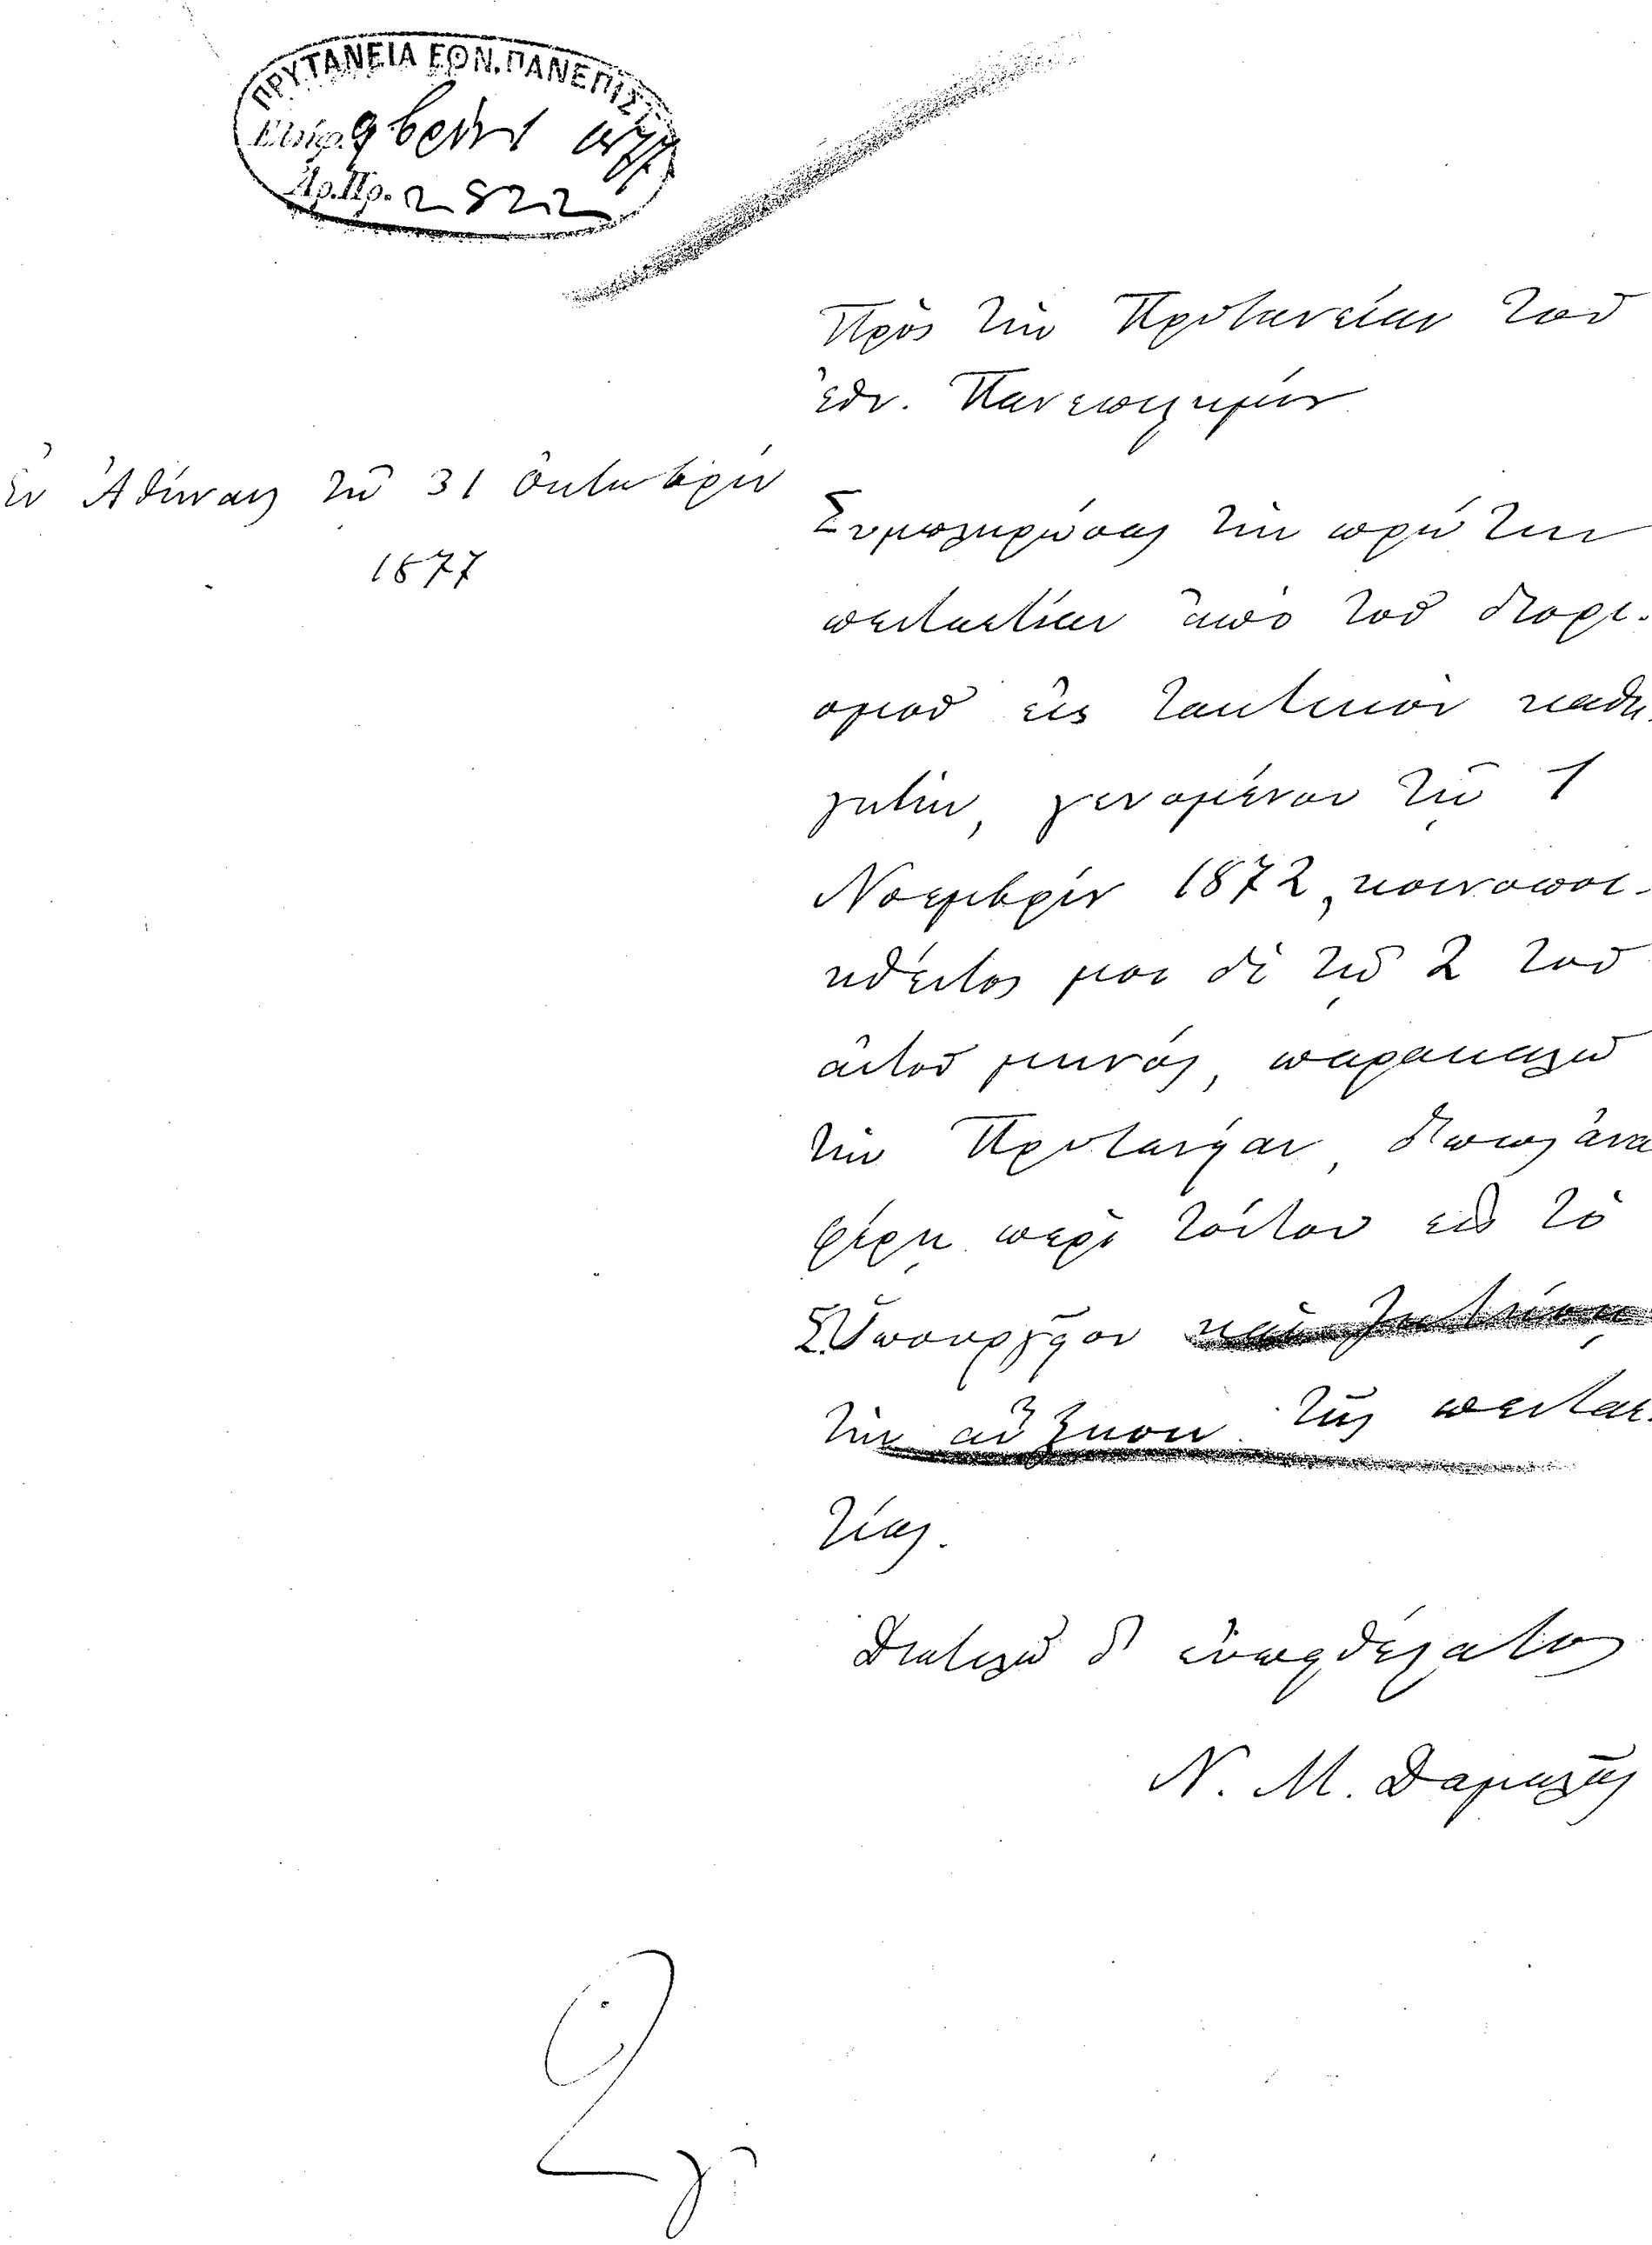 ΠΡΥΤΑΝΕΙΑ ΕΘΝ. ΠΑΝΕΠΙΣΤ.
9βρίου 1
Ἀρ. Πρ. 2822
Πρὸς τὴν Πρυτανείαν τοῦ
ἐθν. Πανεπιστημίου
Ἐν Ἀθήναις τῇ 31 Ὀκτωβρίου
1877
Συμπληρώσας τὴν πρώτην
πενταετίαν ἀπὸ τοῦ διορι-
σμοῦ εἰς τακτικὸν καθη-
γητήν, γενομένου τῇ 1
Νοεμβρίου 1872, κοινοποι-
ηθέντος μοι δὲ τῇ 2 τοῦ
αὐτοῦ μηνός, παρακαλῶ
τὴν Πρυτανείαν, ὅπως ἀνα
φέρῃ περὶ τούτου εἰς τὸ
Σ. Ὑπουργεῖον καὶ ζητήσῃ
τὴν αὔξησιν τῆς πενταε-
τίας.
Διατελῶ δ' εὐπειθέστατος
Ν. Μ. Δαμαλᾶς